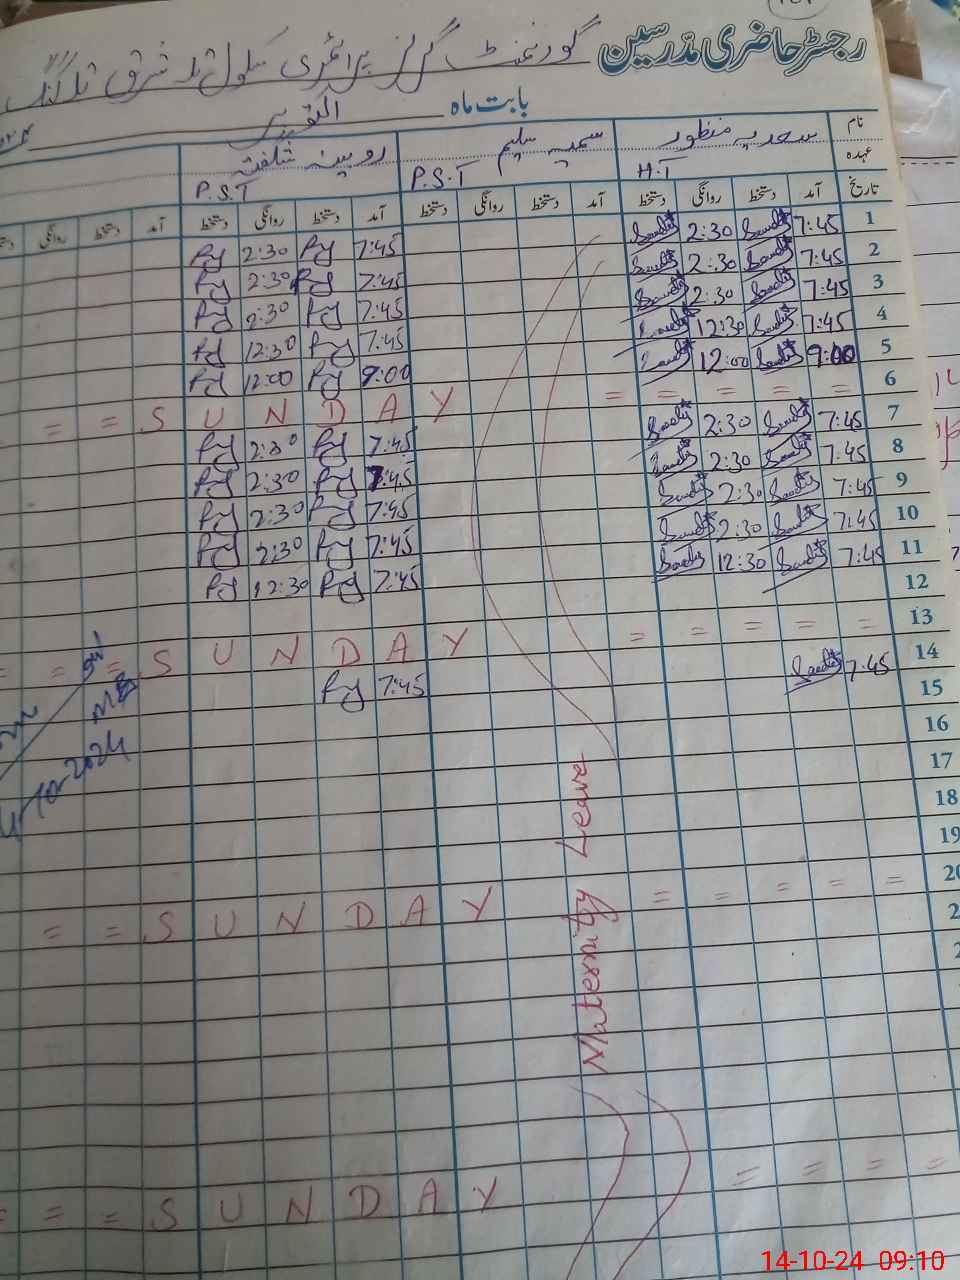 رجسٹر حاضری مدرسین گورنمنٹ گرلز پرائمری سکول شرقی تلہ گنگ
بابت ماہ اکتوبر
نام سعدیہ منظور سمیہ سلیم روبینہ شگفتہ
عہدہ H.T P.S.T P.S.T
تاریخ آمد دستخط روانگی دستخط آمد دستخط روانگی دستخط آمد دستخط روانگی دستخط آمد دستخط روانگی
1 7:45 2:30 7:45 2:30
2 7:45 2:30 7:45 2:30
3 7:45 2:30 7:45 2:30
4 7:45 12:30 7:45 12:30
5 9:00 12:00 9:00 12:00
6 = = = = = S U N D A Y = =
7 7:45 2:30 7:45 2:30
8 7:45 2:30 7:45 2:30
9 7:45 2:30 7:45 2:30
10 7:45 2:30 7:45 2:30
11 7:45 12:30 7:45 12:30
12
13 = = = = = S U N D A Y = = =
14 7:45 7:45
15
16
17
18
19
20 = = = = = S U N D A Y = =
Maternity Leave
= = = = S U N D A Y = = =
10-2024
14-10-24 09:10